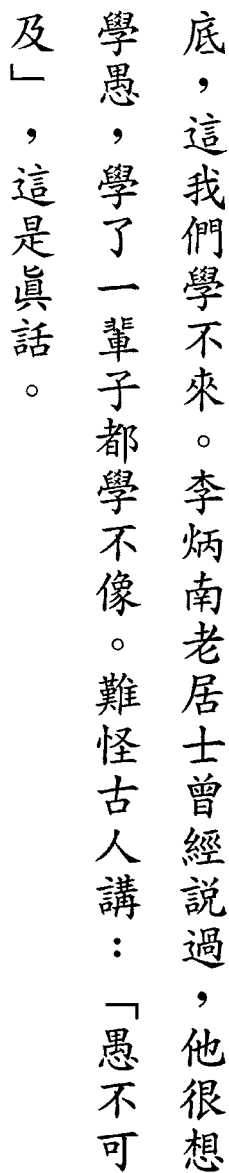 底，這我們學不來。李炳南老居士曾經説過，他很想
學愚，學了一輩子都學不像。難怪古人講：「愚不可
及」，這是眞話。